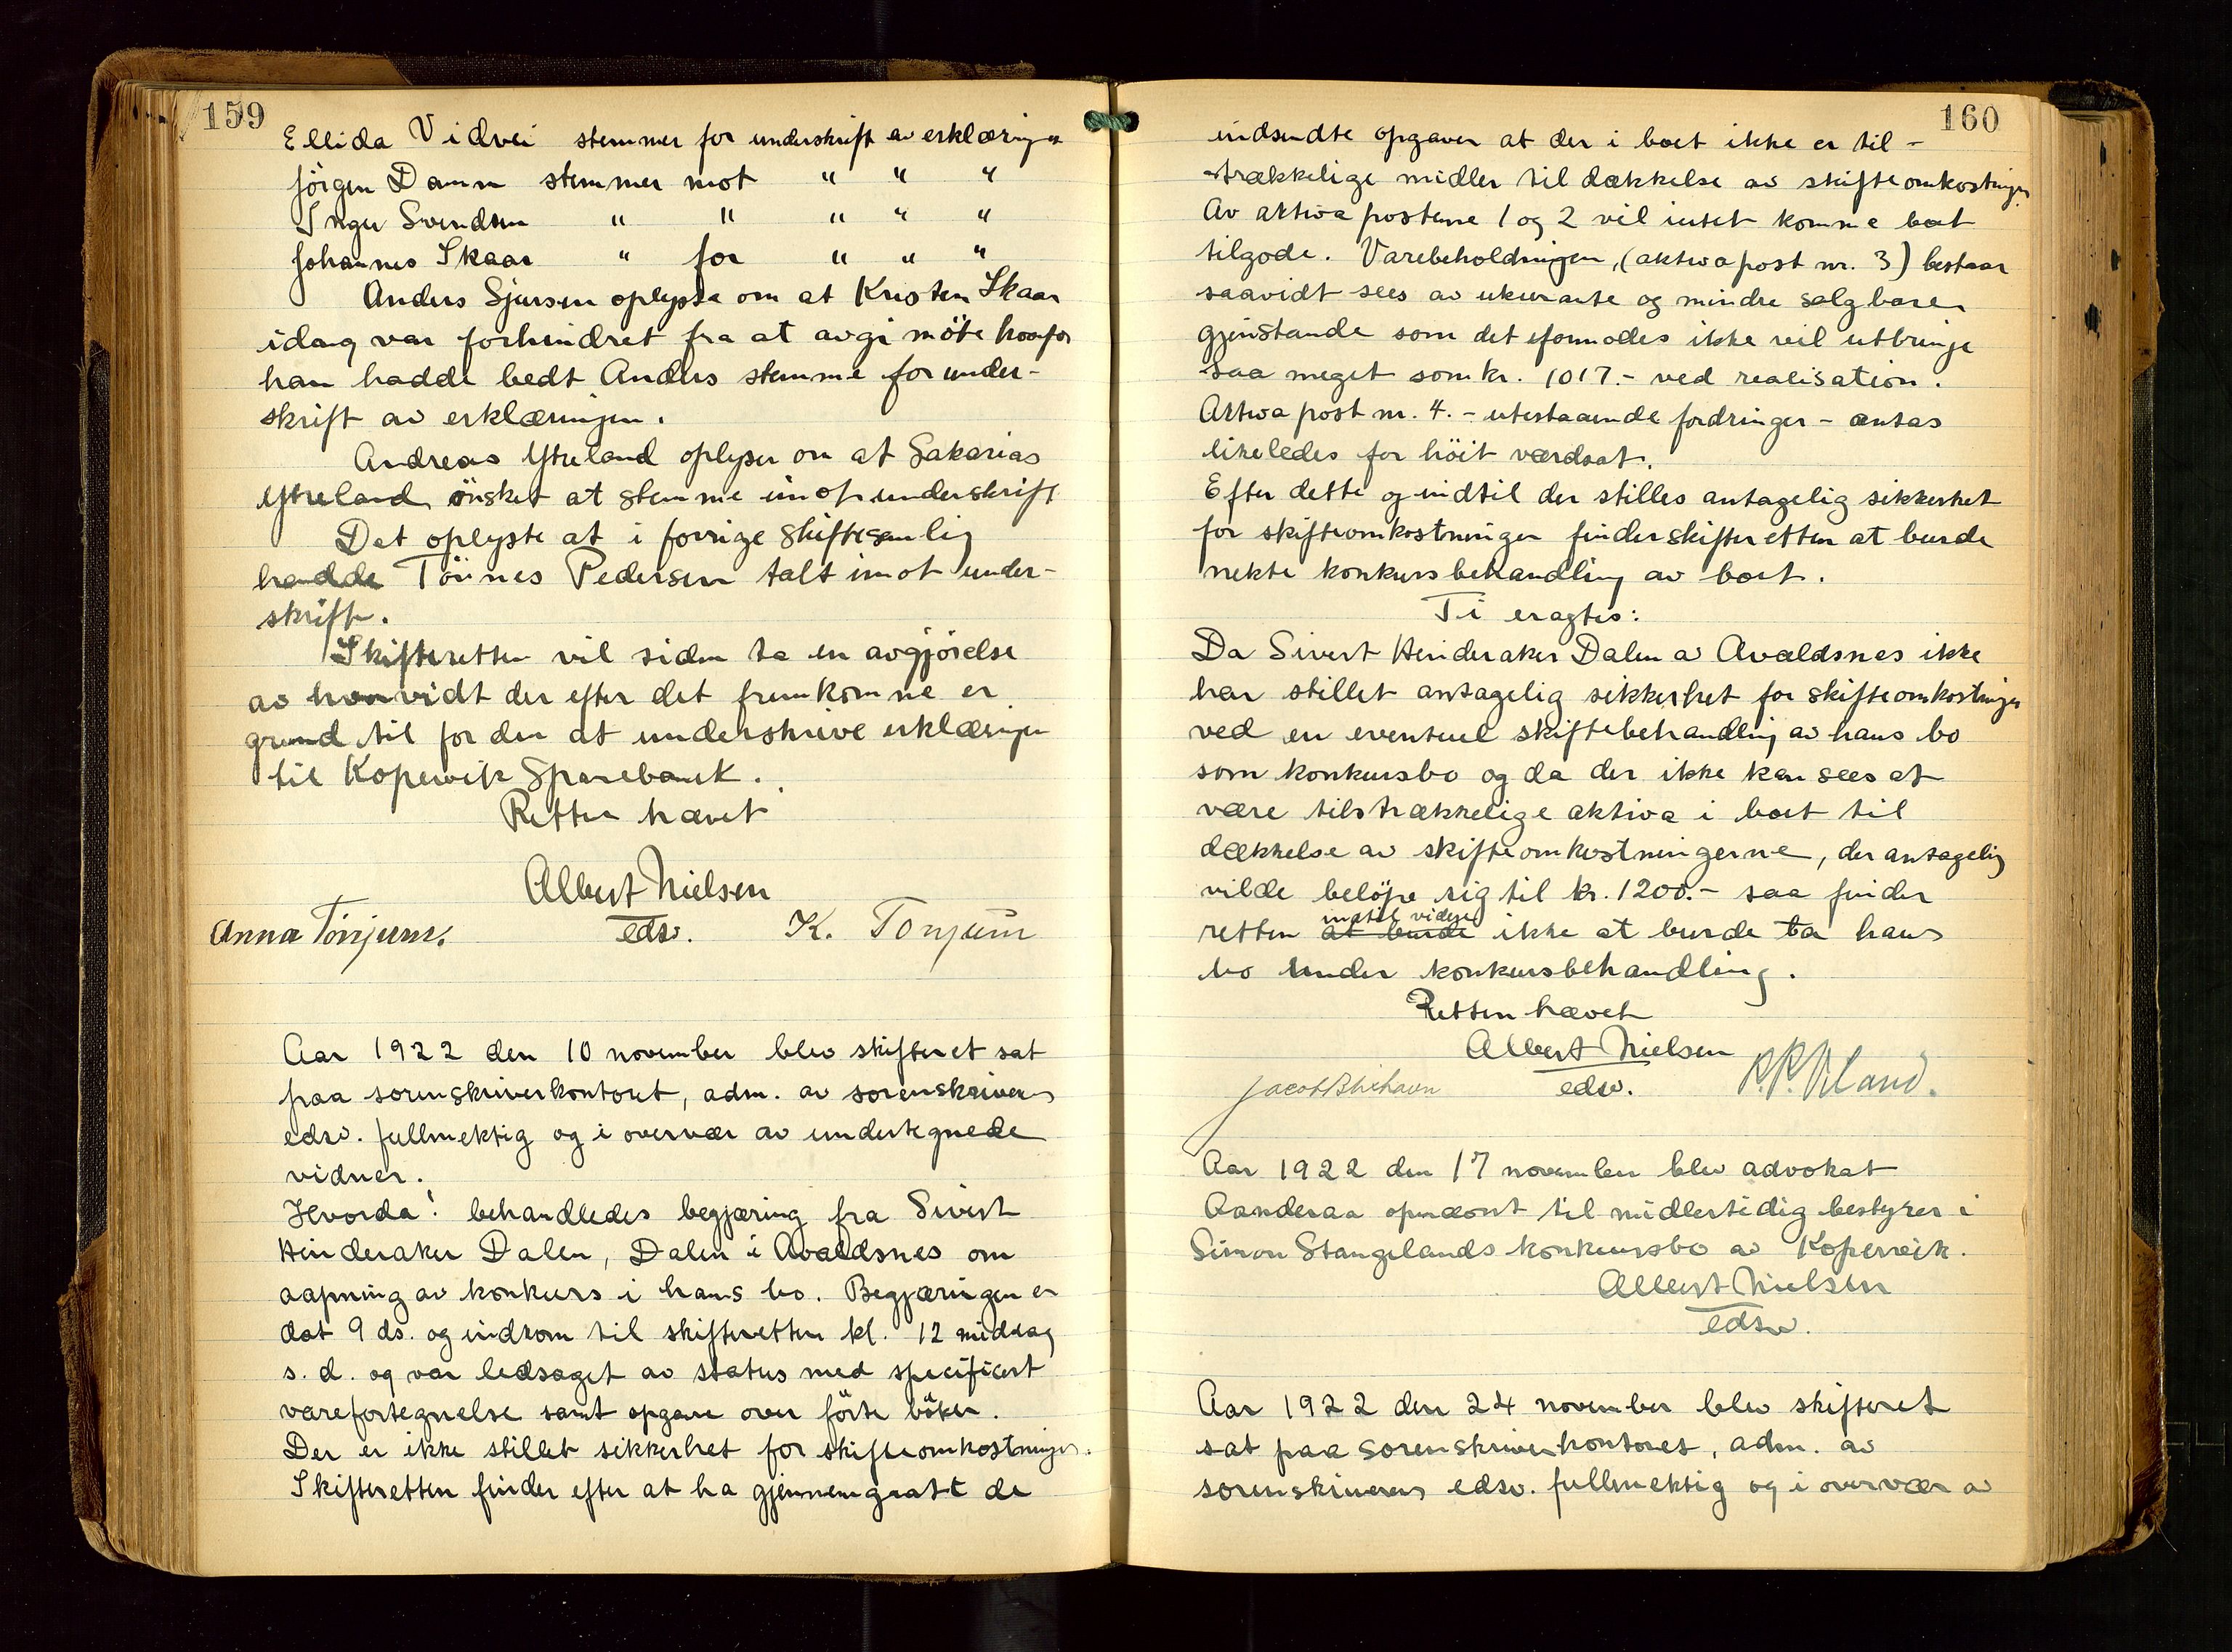 159
Ellida Vidvei stemmer for underskrift av erklæringen
Jörgen Damm stemmer mot " " "
Inger Svendsen " " " " "
Johannes Skaar " for " " "
Anders Sjursen oplyste om at Kristen Skaar
idag var forhindret fra at avgi möte hvorfor
han hadde bedt Anders stemme for under-
skrift av erklæringen.
Andreas Ytreland oplyser om at Sakarias
Ytreland önsket at stemme imot underskrift
Det oplyste at i forrige skiftesamling
hadde Tönnes Pedersen talt imot under-
skrift.
Skifteretten vil siden ta en avgjörelse
av hvorvidt der efter det fremkomne er
grund til for den at underskrive erklæringen
til Kopervik Sparebank.
Retten hævet
Albert Nielsen
Anna Tönjum. edsv. K. Tonjum
Aar 1922 den 10 november blev skifteret sat
paa sorenskriverkontoret, adm. av sorenskriverens
edsv. fullmektig og i overvær av undertegnede
vidner.
Hvorda: behandledes begjæring fra Sivert
Hinderaker Dalen, Dalen i Avaldsnes om
aapning av konkurs i hans bo. Begjæringen er
dat 9 ds. og indkom til skifteretten kl. 12 middag
s. d. og var ledsaget av status med specificert
varefortegnelse samt opgave over förte böker.
Der er ikke stillet sikkerhet for skifteomkostninger.
Skifteretten finder efter at ha gjennemgaat de
160
indsendte opgaver at der i boet ikke er til-
strækkelige midler til dækkelse av skifteomkostninger.
Av aktiva postene 1 og 2 vil intet komme boet
tilgode. Varebeholdningen, (aktiva post nr. 3) bestaar
saavidt sees av ukurante og mindre salgbare
gjenstande som det formodes ikke vil utbringe
saa meget som kr. 1017.- ved realisation.
Aktiva post nr. 4. - utestaaende fordringer - antas
likeledes for höit værdsat.
Efter dette og indtil der stilles antagelig sikkerhet
for skifteomkostninger finder skifteretten at burde
nekte konkursbehandling av boet.
Ti eragtes:
Da Sivert Hinderaker Dalen av Avaldsnes ikke
har stillet antagelig sikkerhet for skifteomkostninger
ved en eventuel skiftebehandling av hans bo
som konkursbo og da der ikke kan sees at
være tilstrækkelige aktiva i boet til
dækkelse av skifteomkostningerne, der antagelig
vilde belöpe sig til kr. 1200.- saa finder
indtil videre
retten at burde ikke at burde ta hans
bo under konkursbehandling.
Retten hævet
Albert Nielsen
edsv.
Aar 1922 den 17 november blev advokat
Aanderaa opnævnt til midlertidig bestyrer i
Simon Stangelands konkursbo av Kopervik.
Albert Nielsen
edsv.
Aar 1922 den 24 november blev skifteret
sat paa sorenskriverkontoret, adm. av
sorenskriverens edsv. fullmektig og i overvær av